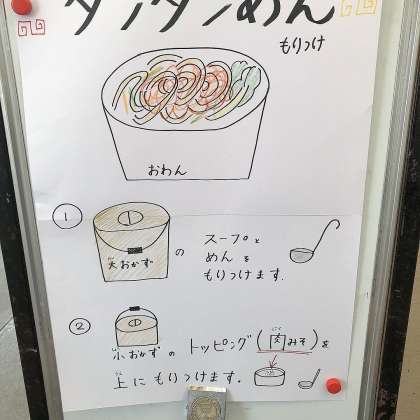 タンタンめん
もりつけ
おわん
① 大おかず の スープと
めんを
もりつけます.
② 小おかず の トッピング(肉みそ)を
上に もりつけます.